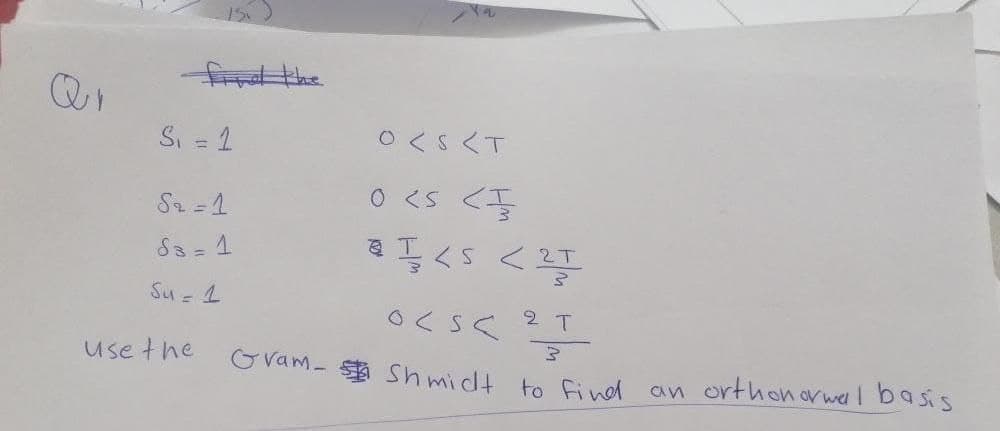 Q1
S1 = 1 0 < s < T
S2 = 1 0 < s < T/3
S3 = 1 T/3 < s < 2T/3
S4 = 1 0 < s < 2T/3
use the Gram- Shmidt to find an orthonormal basis